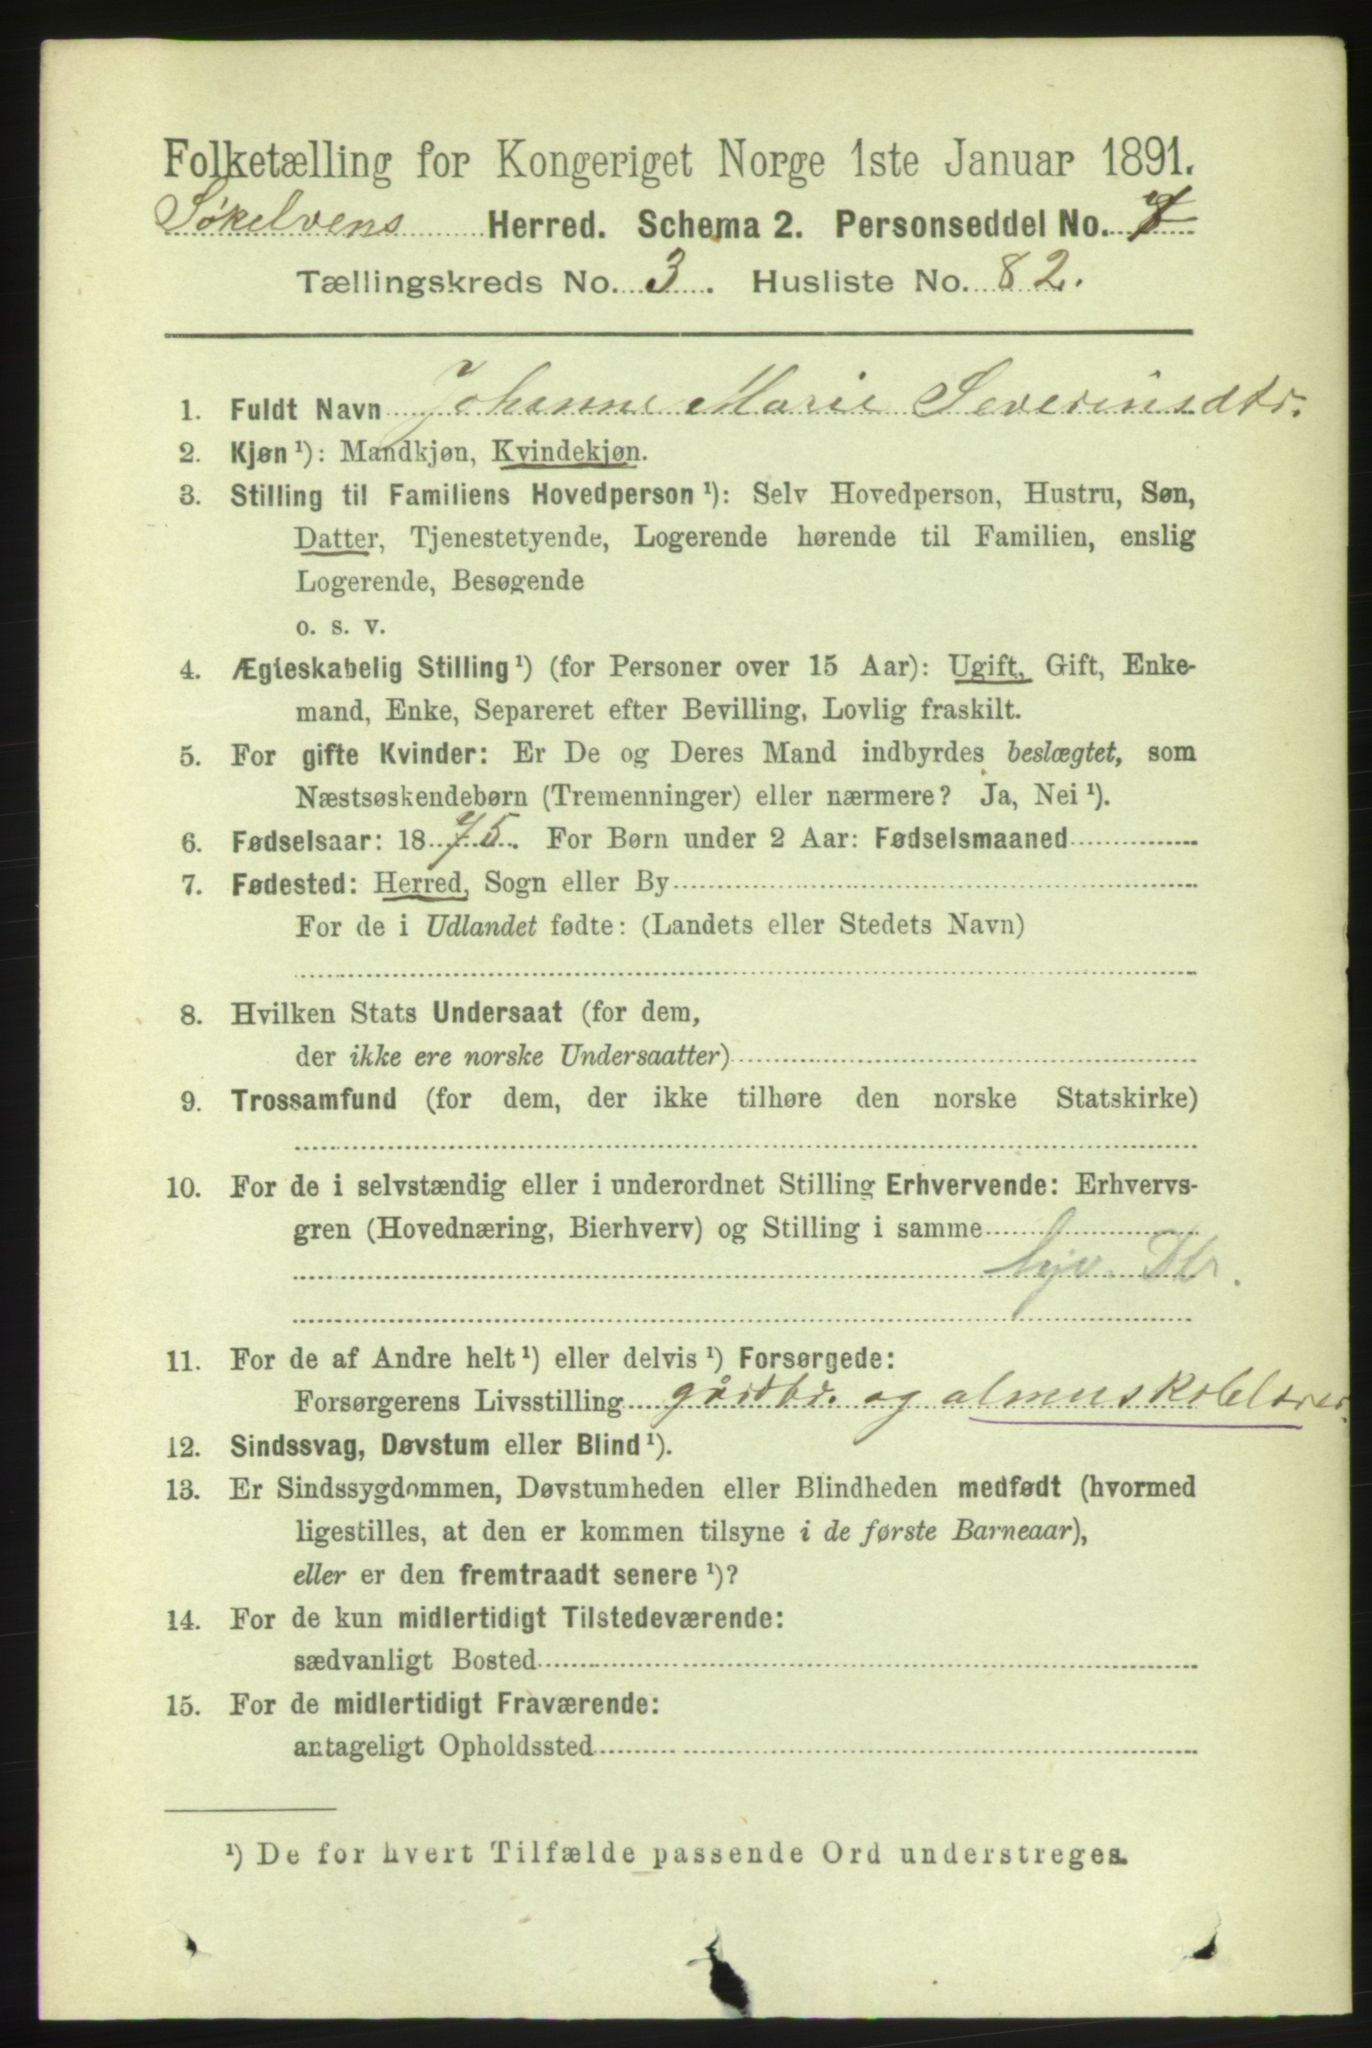 Folketælling for Kongeriget Norge 1ste Januar 1891.
Søkelvens Herred. Schema 2. Personseddel No. 7
Tællingskreds No. 3. Husliste No. 82.
1. Fuldt Navn Johanne Marie Severinsdtr.
2. Kjøn¹): Mandkjøn, Kvindekjøn.
3. Stilling til Familiens Hovedperson¹): Selv Hovedperson, Hustru, Søn,
Datter, Tjenestetyende, Logerende hørende til Familien, enslig
Logerende, Besøgende
o. s. v.
4. Ægteskabelig Stilling¹) (for Personer over 15 Aar): Ugift, Gift, Enke-
mand, Enke, Separeret efter Bevilling, Lovlig fraskilt.
5. For gifte Kvinder: Er De og Deres Mand indbyrdes beslægtet, som
Næstsøskendebørn (Tremenninger) eller nærmere? Ja, Nei¹).
6. Fødselsaar: 1875. For Børn under 2 Aar: Fødselsmaaned
7. Fødested: Herred, Sogn eller By
For de i Udlandet fødte: (Landets eller Stedets Navn)
8. Hvilken Stats Undersaat (for dem,
der ikke ere norske Undersaatter)
9. Trossamfund (for dem, der ikke tilhøre den norske Statskirke)
10. For de i selvstændig eller i underordnet Stilling Erhvervende: Erhvervs-
gren (Hovednæring, Bierhverv) og Stilling i samme
11. For de af Andre helt¹) eller delvis¹) Forsørgede:
Forsørgerens Livsstilling gårdbr. og almuskolelærer.
12. Sindssvag, Døvstum eller Blind¹).
13. Er Sindssygdommen, Døvstumheden eller Blindheden medfødt (hvormed
ligestilles, at den er kommen tilsyne i de første Barneaar),
eller er den fremtraadt senere¹)?
14. For de kun midlertidigt Tilstedeværende:
sædvanligt Bosted
15. For de midlertidigt Fraværende:
antageligt Opholdssted
¹) De for hvert Tilfælde passende Ord understreges.